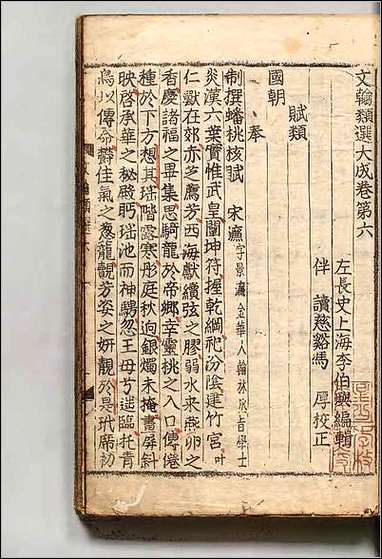 文翰類選大成卷第六
左長史上海李伯璵編輯
伴讀慈谿馮厚校正
賦類
國朝
奉
制撰蟠桃核賦 宋濂字景濂金華人翰林承旨學士
炎漢六葉實惟武皇闡坤符握乾綱祀汾陰建竹宮叶
仁獸在郊赤芝薦芳西海獻續弦之膠弱水來燕卵之
香慶諸福之畢集思騎龍於帝鄉幸靈桃之入口傳倦
種於下方想其瑤階露寒彤庭秋迥銀燭未掩畫屏斜
映啓承華之秘殿眄瑤池而神騁忽王母兮迷臨托青
鳥以傳命欝佳氣之葱蘢覩芳姿之妍靚於是玳席初